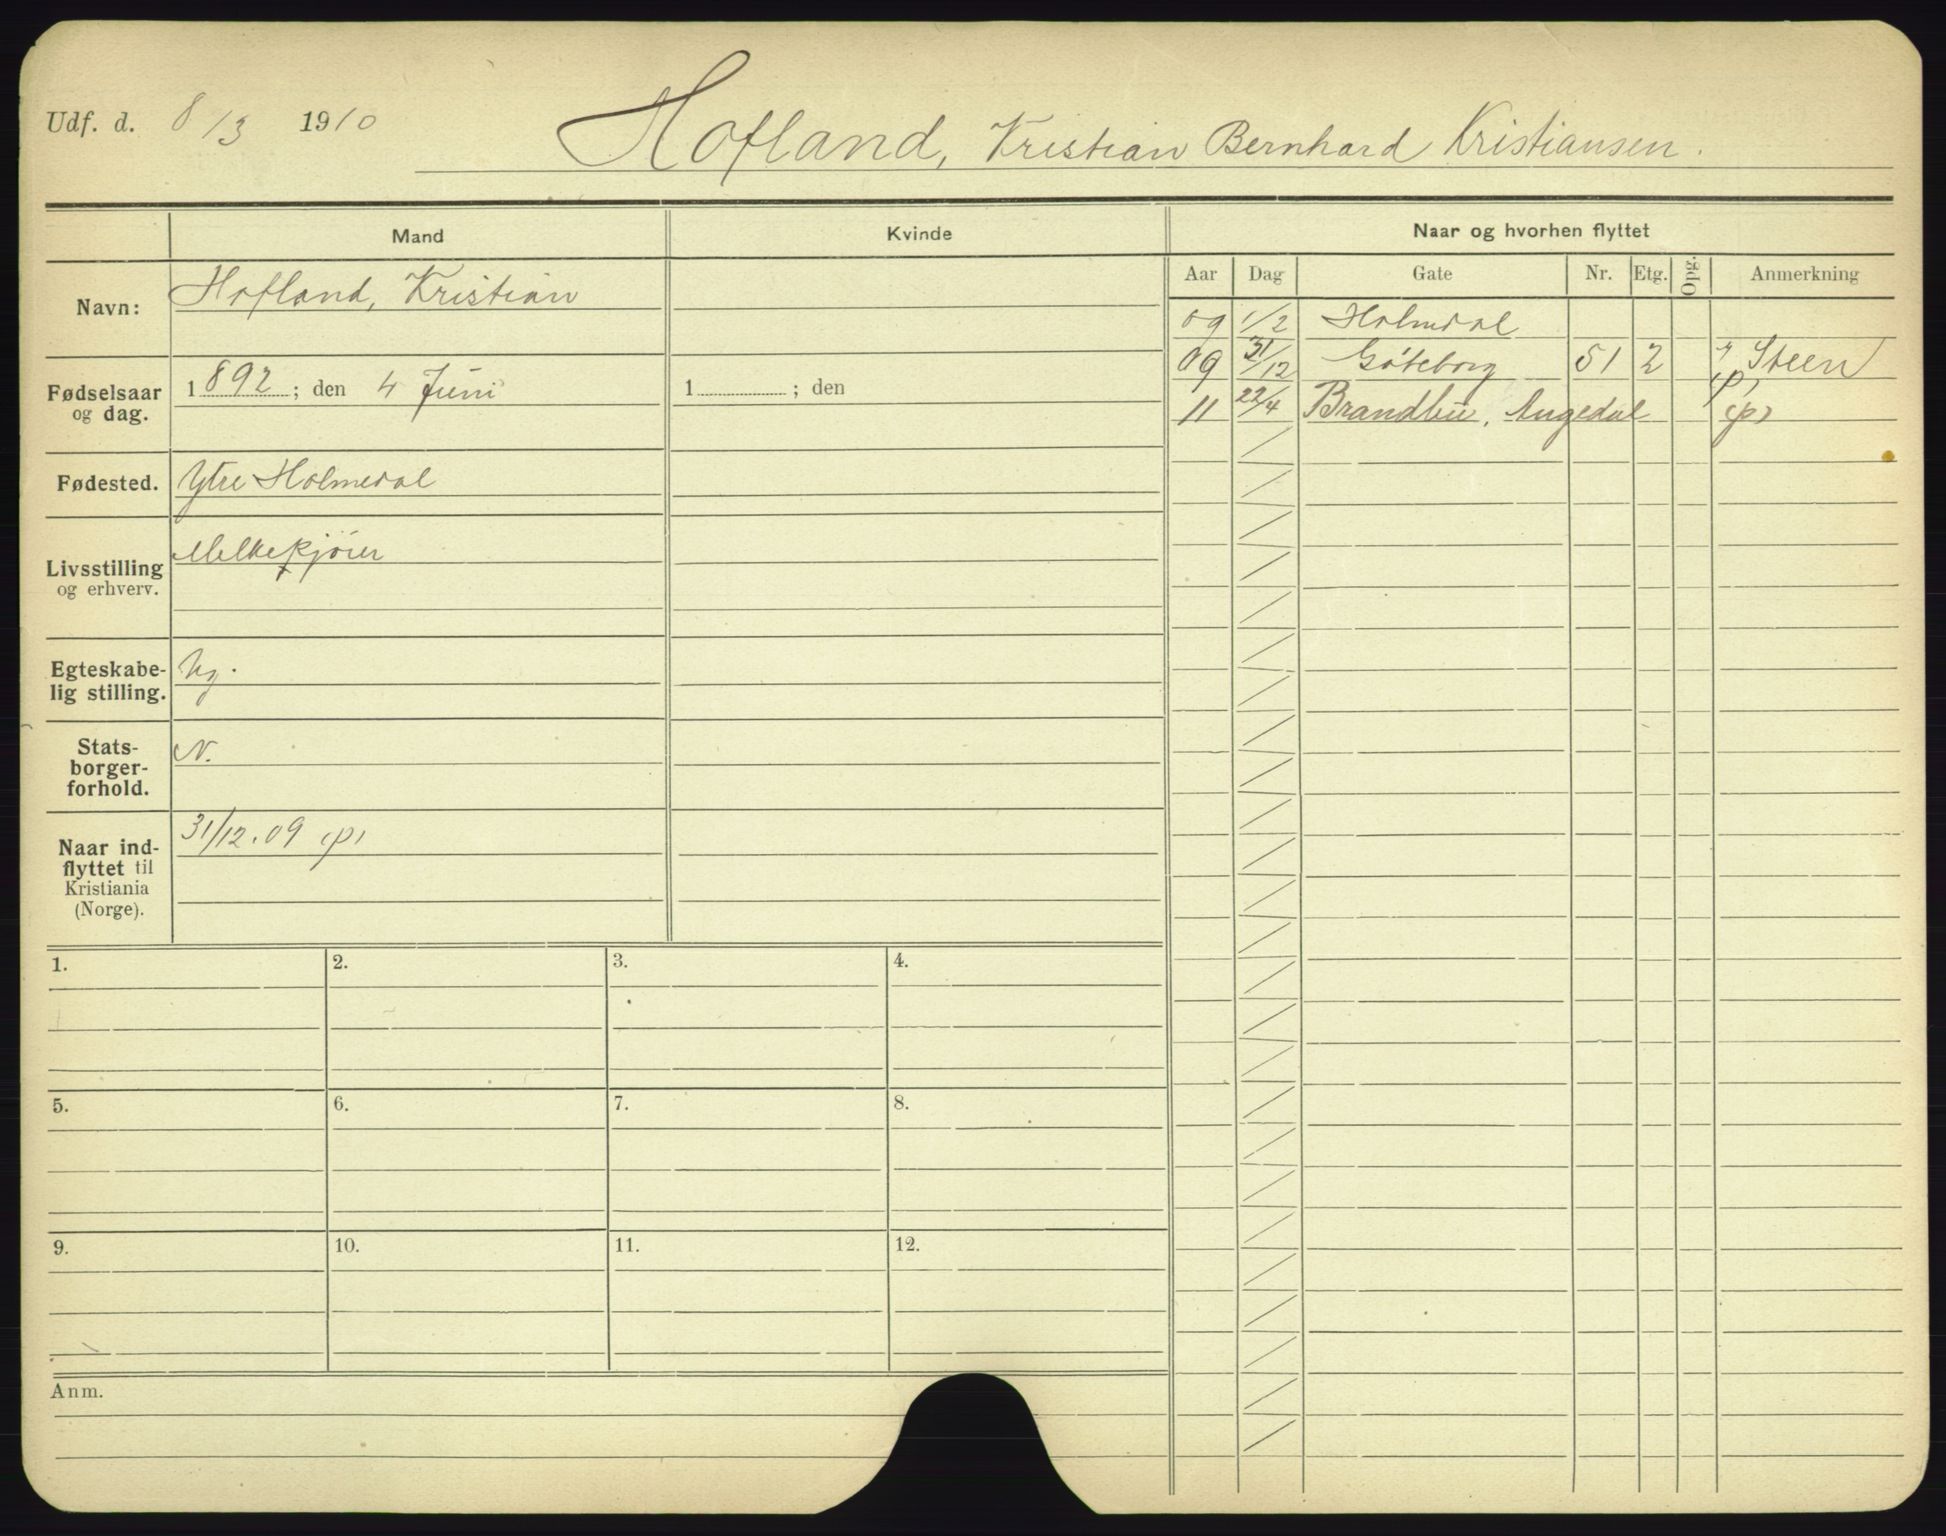 Udf. d. 8/3 1910 Hofland, Kristian Bernhard Kristiansen.
Mand Kvinde Naar og hvorhen flyttet
Aar Dag Gate Nr. Etg. Opg. Anmerkning
Navn: Hofland, Kristian
09 1/2 Holmedal
09 31/12 Göteborg 51 2 Steen (p)
11 22/4 Brandbu, Augedal (p)
Fødselsaar
og dag.
1892; den 4 Juni 1 ; den
Fødested. Ytre Holmedal
Livsstilling
og erhverv.
Melkekjörer
Egteskabe-
lig stilling.
Ug.
Stats-
borger-
forhold.
N.
Naar ind-
flyttet til
Kristiania
(Norge).
31/12.09 (p)
1. 2. 3. 4.
5. 6. 7. 8.
9. 10. 11. 12.
Anm.